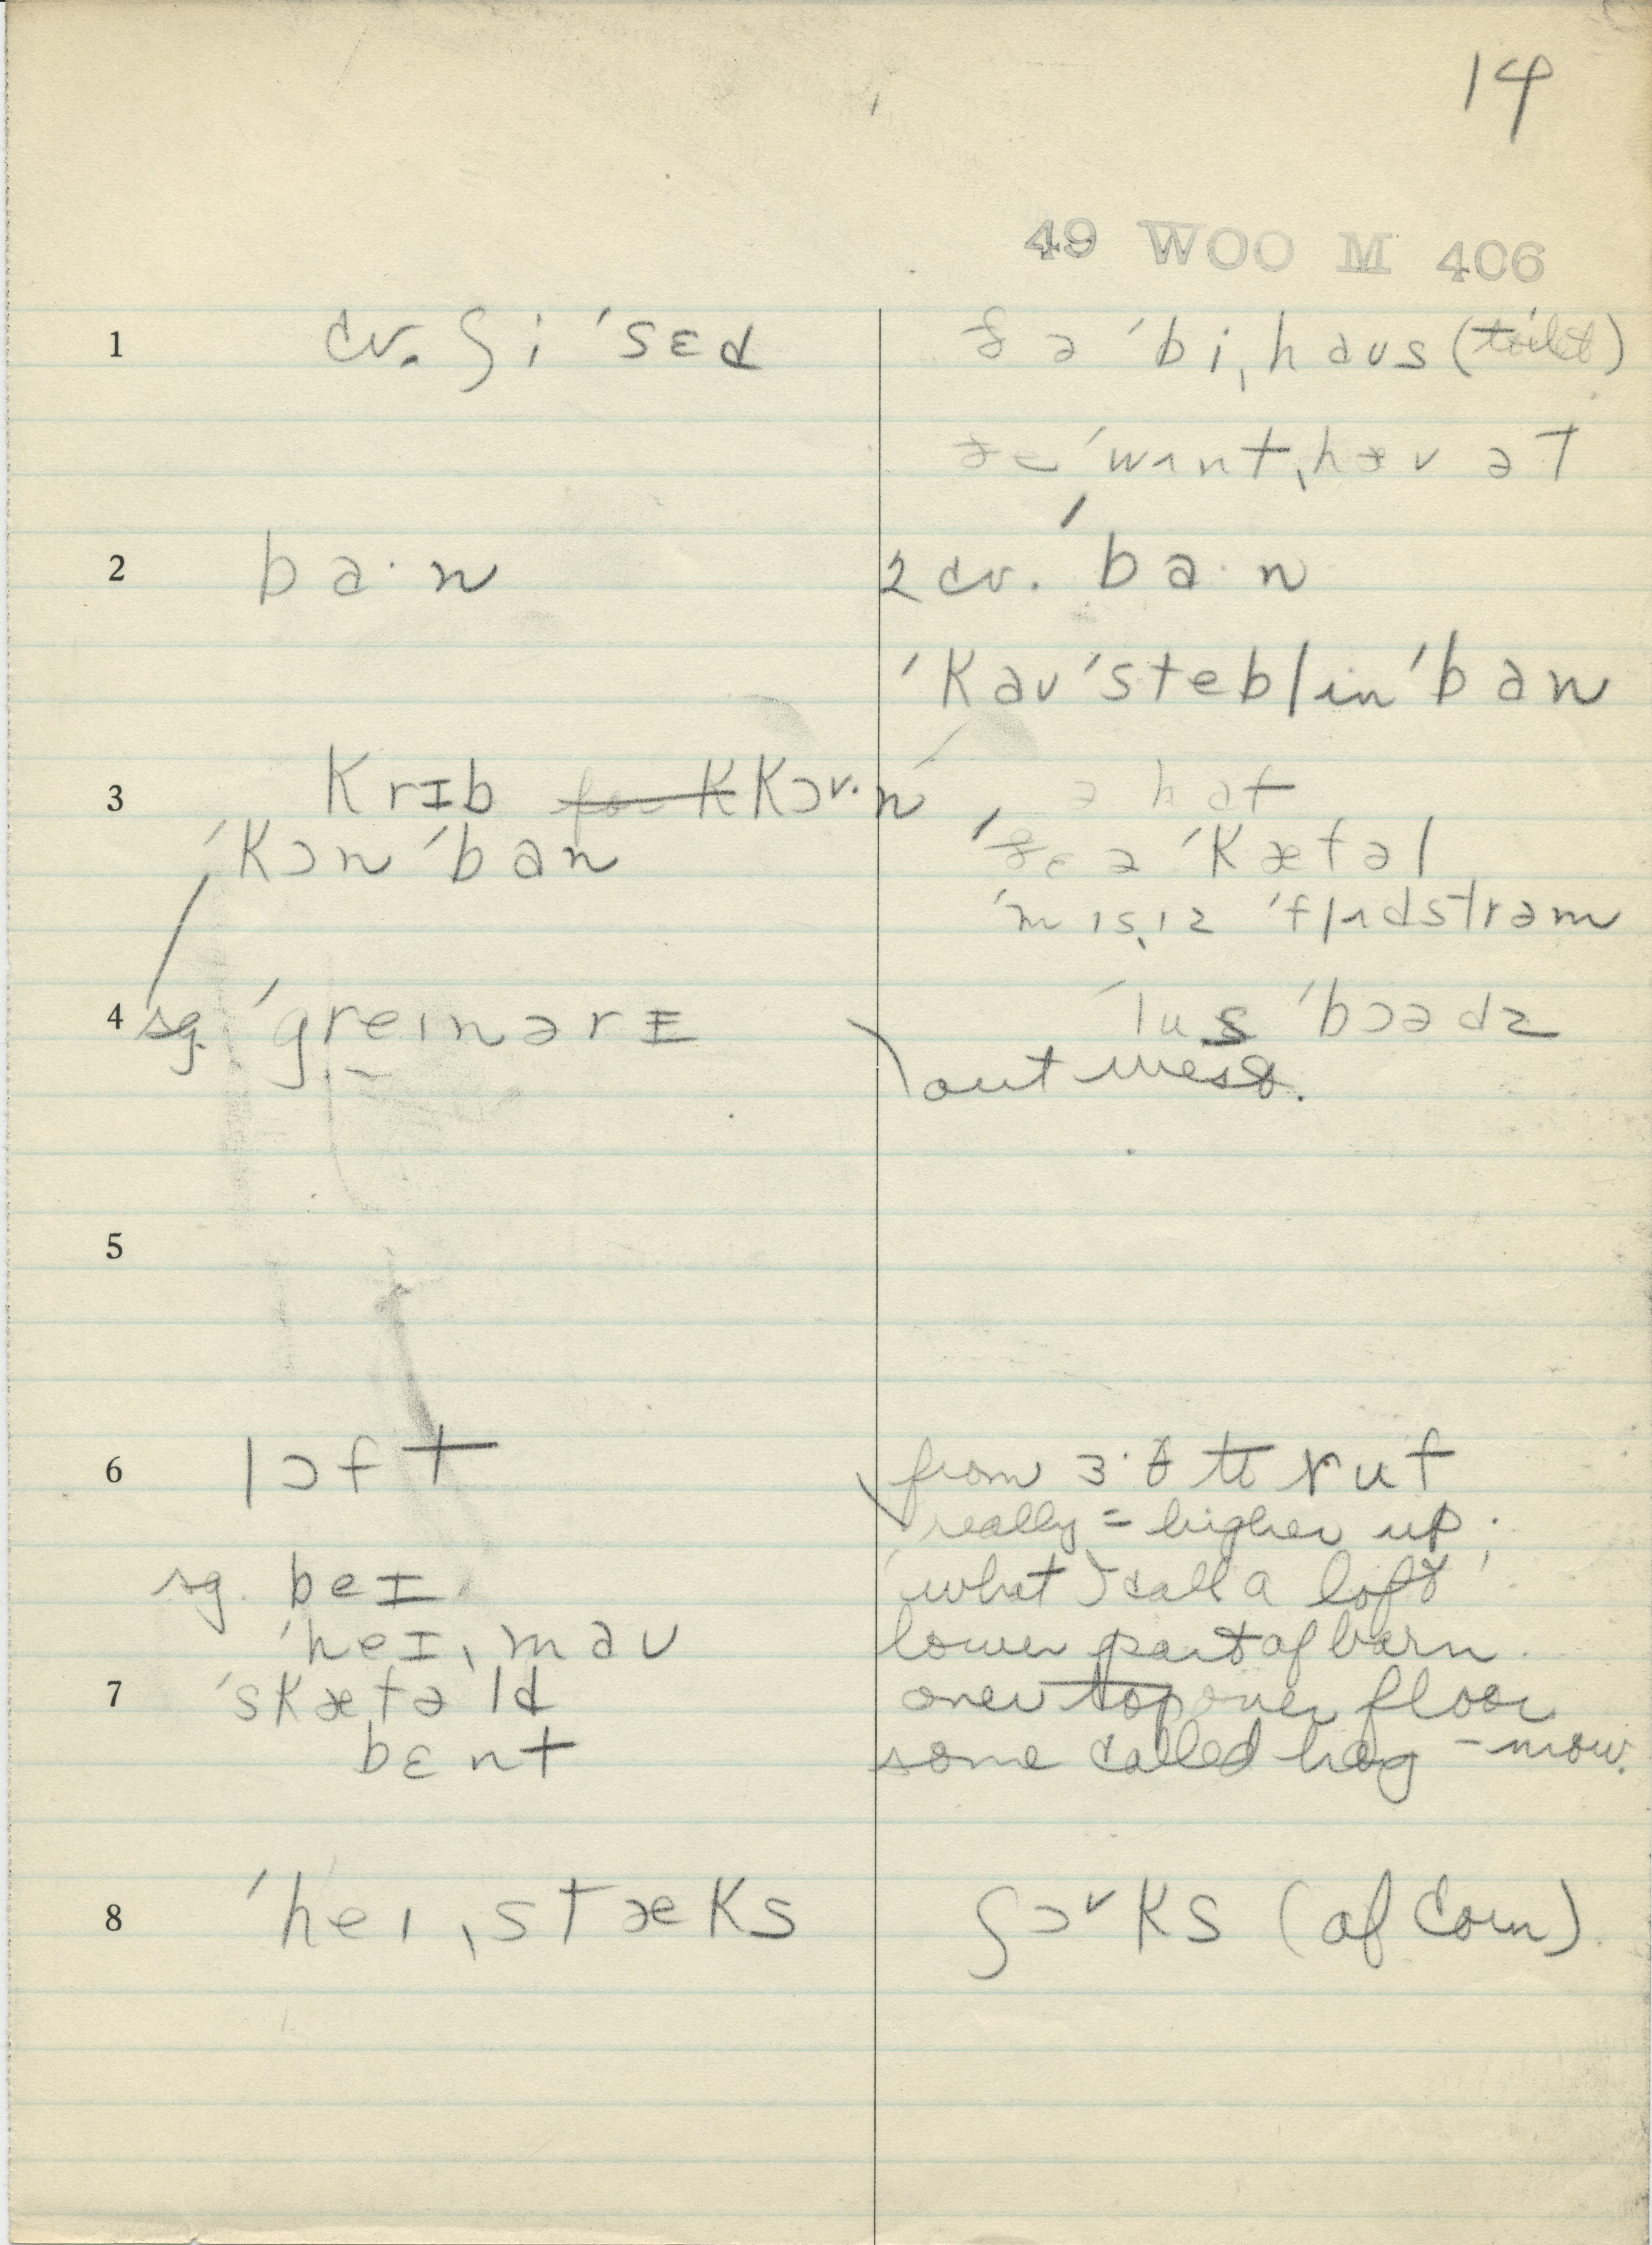 14
49 WOO M 406
1 cv. ʃi ˈsɛd ðə ˈbiˌhaus (toilet)
ˈwʌntˌhæv ət
2 ba·n 2 cv. ˈba·n
ˈkauˈstebl in ˈban
3 krɪb ˈkɔn ə hat
ˈkɔn ˈban ə ˈkætəl
ˈmɪsˌɪz ˈflʌdstrəm
4 sg. ˈgreɪnərɪ ˈlus ˈbɔədz
out west.
5
6 lɔft from 3·ð to ruf
really = higher up.
sg. beɪ 'what I call a loft'
ˈheɪˌmau lower part of barn
7 ˈskæfəld over top over floor
bɛnt some called hog-mow.
8 ˈheɪˌstæks ʃɔks (of corn)